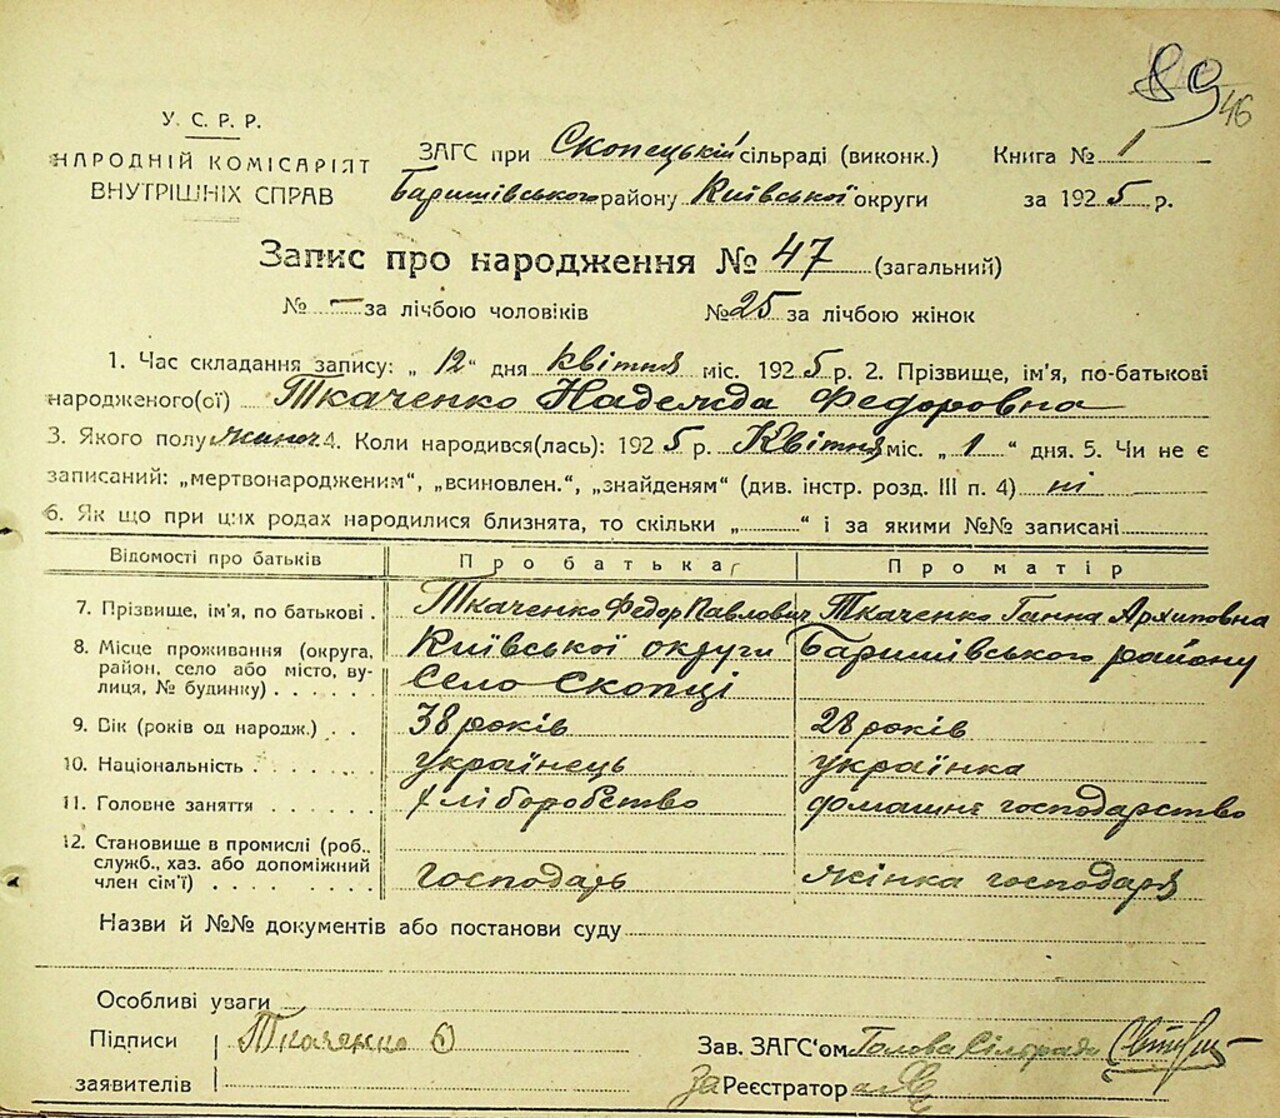 89
46
У. С. Р. Р.
НАРОДНІЙ КОМІСАРІЯТ
ВНУТРІШНІХ СПРАВ
ЗАГС при Скопецькій сільраді (виконк.) Книга № 1
Баришівського району Київської округи за 1925 р.
Запис про народження № 47 (загальний)
№ — за лічбою чоловіків № 25 за лічбою жінок
1. Час складання запису: „ 12 “ дня квітня міс. 1925 р. 2. Прізвище, ім'я, по-батькові
народженого(ої) Ткаченко Надежда Федоровна
3. Якого полу жіноч. 4. Коли народився(лась): 1925 р. Квітня міс. „ 1 “ дня. 5. Чи не є
записаний: „мертвонародженим“, „всиновлен.“, „знайденям“ (див. інстр. розд. III п. 4) ні
6. Як що при цих родах народилися близнята, то скільки „ “ і за якими №№ записані
Відомості про батьків Про батька Про матір
7. Прізвище, ім'я, по батькові . Ткаченко Федор Павлович Ткаченко Ганна Архиповна
8. Місце проживання (округа, Київської округи Баришівського району
район, село або місто, ву-
лиця, № будинку) . . . . . . Село Скопці
9. Вік (років од народж.) . . 38 років 28 років
10. Національність . . . . . . українець українка
11. Головне заняття . . . . . . хліборобство домашнє господарство
12. Становище в промислі (роб.,
служб., хаз. або допоміжний
член сім'ї) . . . . . . . . господарь жінка господаря
Назви й №№ документів або постанови суду
Особливі уваги
Підписи Ткаченко Ф Зав. ЗАГС'ом Голова Сілради
заявителів За Реєстратор